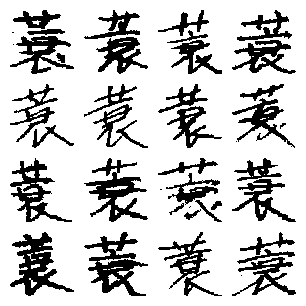 蓑蓑蓑蓑
蓑蓑蓑蓑
蓑蓑蓑蓑
蓑蓑蓑蓑